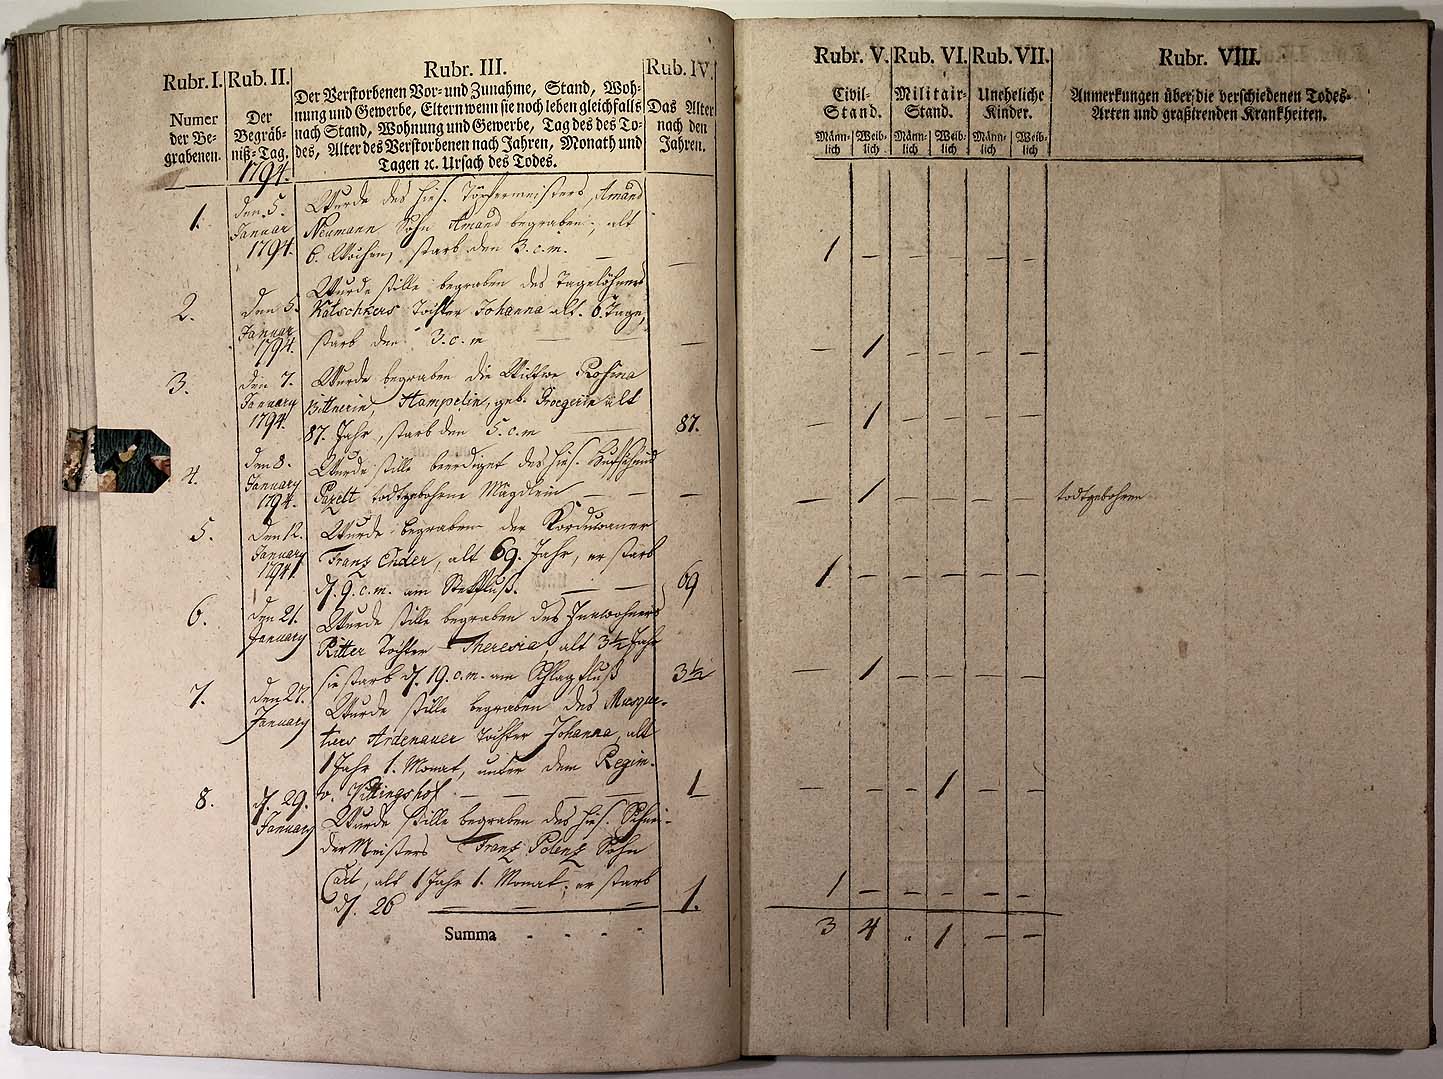 Rubr. I.
Numer
der Be-
grabenen.
Rub. II.
Der
Begräb-
niß-Tag.
1794.
Rubr. III.
Der Verstorbenen Vor- und Zunahme, Stand, Woh-
nung und Gewerbe, Eltern wenn sie noch leben gleichfalls
nach Stand, Wohnung und Gewerbe, Tag des des To-
des, Alter des Verstorbenen nach Jahren, Monath und
Tagen ꝛc. Ursach des Todes.
Rub. IV.
Das Alter
nach den
Jahren.
1.
den 5.
Januar
1794.
Wurde des hies. Töpfermeisters Amand
Neumann Sohn Amand begraben, alt
6. Wochen, starb den 3. c. m. —
—
2.
den 5.
Januar
1794.
Wurde stille begraben des Tagelöhners
Katschkers Tochter Johanna alt. 6. Tage,
starb den 3. c. m — —
—
3.
den 7.
January
1794.
Wurde begraben die Wittwe Rosina
Bittnerin, Hampelin, geb. Groegerin alt
87. Jahr, starb den 5. c. m —
87.
4.
den 8.
January
1794.
Wurde stille beerdiget des hies. Hufschmid
Pazelt todtgebohrne Mägdlein — —
—
5.
den 12.
January
1794.
Wurde begraben der Korduwaner
Franz Ehder, alt 69. Jahr, er starb
d. 9. c. m. am Steckfluß. — —
69
6.
den 21.
January
Wurde stille begraben des Innwohners
Ritter Tochter Theresia, alt 3½ Jahr
sie starb d. 19. c. m. am Schlagfluß
3½
7.
den 27.
January
Wurde stille begraben des Musque-
tiers Ardenauer Tochter Johanna, alt
1 Jahr 1. Monat, unter dem Regim.
v. — — — —
1
8.
d. 29.
January
Wurde stille begraben des hies. Schnei-
der Meisters Franz Polenz Sohn
Carl, alt 1 Jahr 1. Monat; er starb
d. 26 — — —
1.
Summa - - - -
Rubr. V.
Civil-
Stand.
Männ-
lich
Weib-
lich
Rub. VI.
Militair-
Stand.
Männ-
lich
Weib-
lich
Rub. VII.
Uneheliche
Kinder.
Männ-
lich
Weib-
lich
Rubr. VIII.
Anmerkungen über die verschiedenen Todes-
Arten und graßirenden Krankheiten.
1 — — — — —
— 1 — — — —
— 1 — — — —
— 1 — — — — todtgebohren
1 — — — — —
— 1 — — — —
— — — 1 — —
1 — — — — —
3 4 .. 1 — —